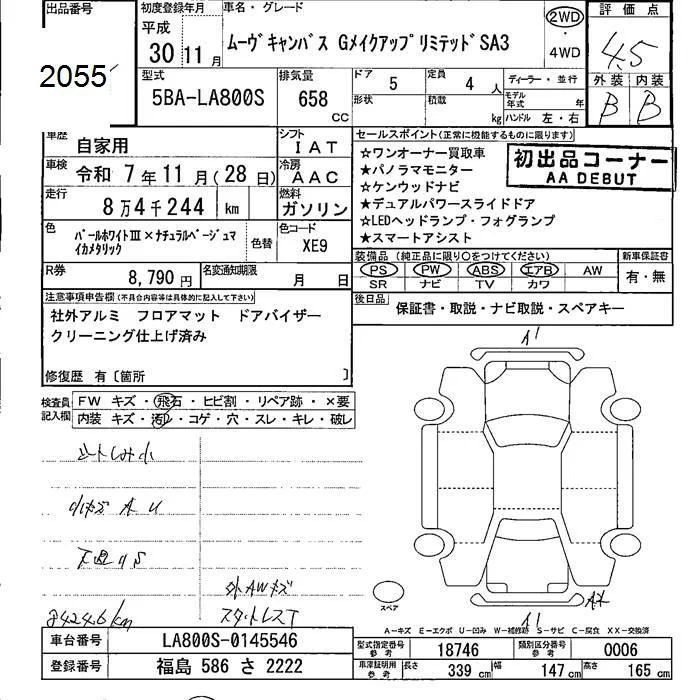 出品番号
2055
初度登録年月
平成
30 11月
車名・グレード
ムーヴキャンバス GメイクアップリミテッドSA3
2WD
・
4WD
評価点
4.5
外装 内装
B B
型式
5BA-LA800S
排気量
658
CC
ドア
5
定員
4 人
形状
積載
kg
ディーラー・並行
モデル年式 年
ハンドル 左・右
車歴
自家用
シフト
IAT
車検
令和 7年11月(28日)
冷房
AAC
走行
8万4千244 km
燃料
ガソリン
色
パールホワイトⅢ×ナチュラルベージュマイカメタリック
色替
色コード
XE9
R券
8,790円
名変通知期限
月 日
セールスポイント(正常に機能するものに限ります)
☆ワンオーナー買取車
★パノラマモニター
☆ケンウッドナビ
★デュアルパワースライドドア
☆LEDヘッドランプ・フォグランプ
★スマートアシスト
初出品コーナー
AA DEBUT
装備品(純正品に限り○をつけてください)
PS PW ABS エアB AW
SR ナビ TV カワ
新車保証書
有・無
後日品
保証書・取説・ナビ取説・スペアキー
注意事項申告欄(不具合内容等は具体的に記入して下さい)
社外アルミ フロアマット ドアバイザー
クリーニング仕上げ済み
修復歴 有〔箇所 〕
検査員記入欄
FW キズ・飛石・ヒビ割・リペア跡・×要
内装 キズ・汚レ・コゲ・穴・スレ・キレ・破レ
シートしみ小
小キズ A U
天凹S
外AWキズ
スタットレスT
84246km
A1
A1
AX
スペア
A-キズ E-エクボ U-凹み W-補修跡 S-サビ C-腐食 XX-交換済
車台番号
LA800S-0145546
登録番号
福島 586 さ 2222
型式指定番号 参考
18746
類別区分番号 参考
0006
車庫証明用 参考
長さ 339 cm
幅 147 cm
高さ 165 cm